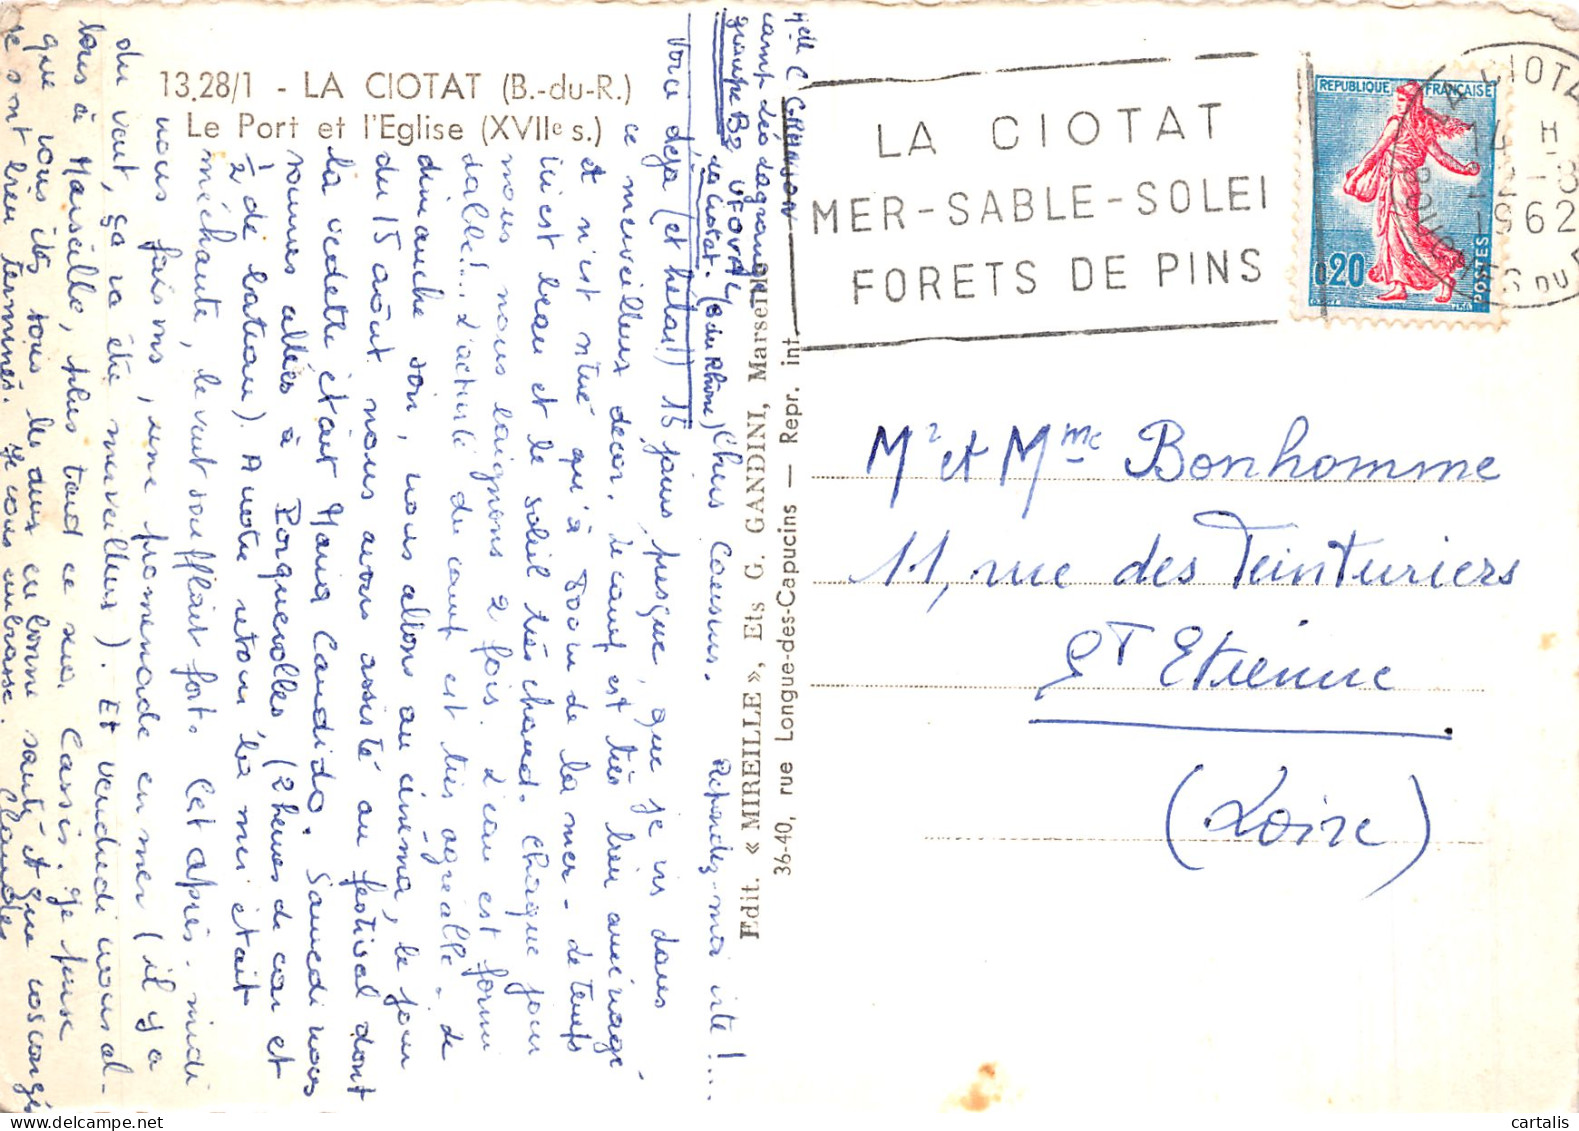 13.28/1 - LA CIOTAT (B.-du-R.)
Le Port et l'Eglise (XVIIe s.)
Melle C GRANJON
camp des
groupe B2 UFOVAL
La Ciotat. (B du Rhône)
Chers Cousins. Répondez-moi vite!...
Voici déjà (et hélas!) 15 jours, presque, que je vis dans
ce merveilleux décor. Le camp est très bien aménagé
et n'est situé qu'à 800 m de la mer - le temps
ici est beau et le soleil très chaud. Chaque jour
nous nous baignons 2 fois. L'eau est formi
dable!... L'activité du camp est très agréable. Le
dimanche soir, nous allons au cinéma, le jour
du 15 août nous avons assisté au festival dont
la vedette était Maria Candido. Samedi nous
sommes allés à Porquerolles (2 heures de car et
1/2 de bateau). A notre retour la mer était
méchante, le vent soufflait fort. Cet après-midi
nous faisons, une promenade en mer (il y a
du vent, ça va être merveilleux). Et vendredi nous al-
lons à Marseille, plus tard ce sera Cassis. Je pense
que vous êtes tous les deux en bonne santé et que vos congés
se sont bien terminés. Je vous embrasse. Claudes
Edit. « MIREILLE », Ets G. GANDINI, Marseille
36-40, rue Longue-des-Capucins — Repr. int.
LA CIOTAT
MER-SABLE-SOLEI
FORETS DE PINS
REPUBLIQUE FRANÇAISE
0,20
POSTES
LA CIOTA
H
1962
BOUCHES DU R
Mr et Mme Bonhomme
11, rue des Teinturiers
St Etienne
(Loire)
cartalis